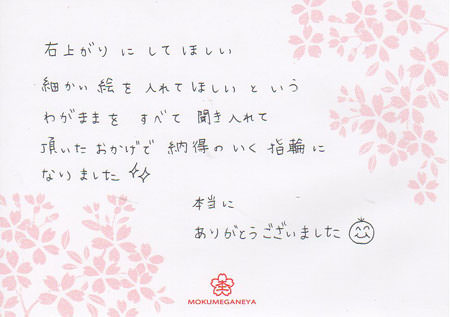 右上がりにしてほしい
細かい絵を入れてほしいという
わがままをすべて聞き入れて
頂いたおかげで納得のいく指輪に
なりました
本当に
ありがとうございました
MOKUMEGANEYA